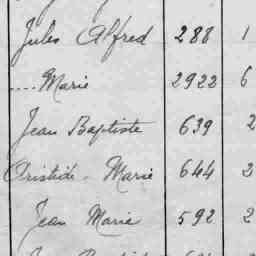 Jules Alfred 288 1
.... Marie 2922 6
Jean Baptiste 639 2
Aristide. Marie 644 2
Jean Marie 592 2